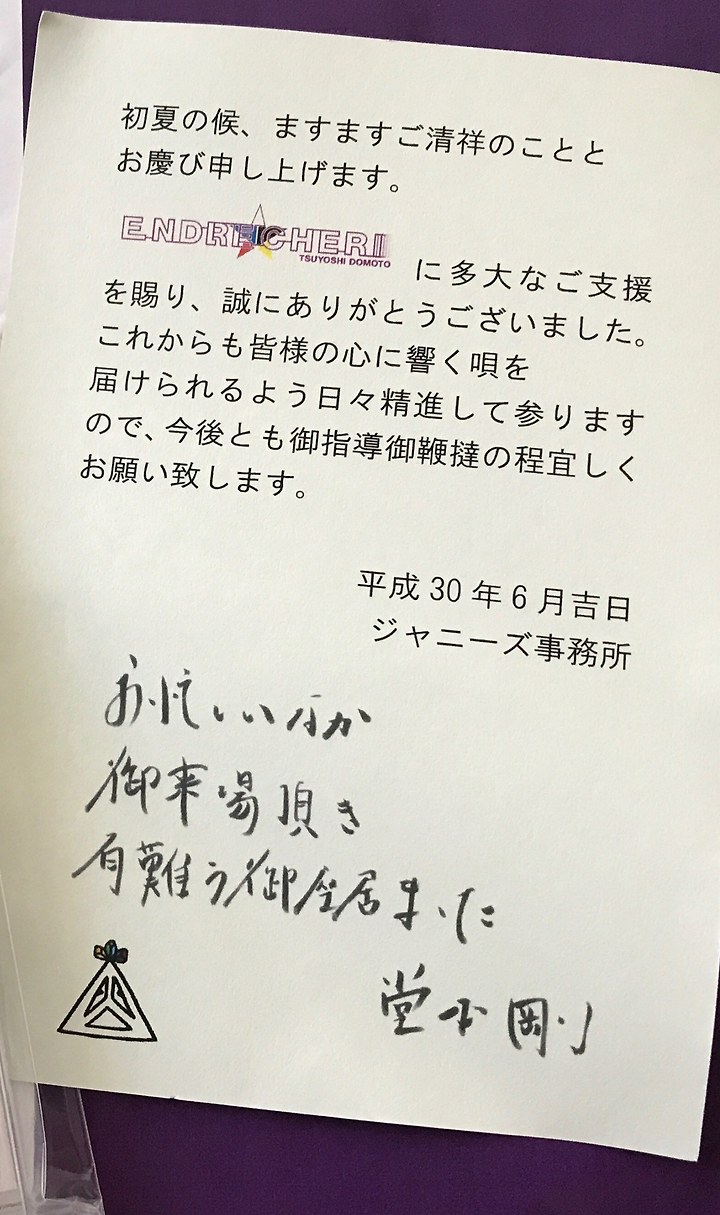 初夏の候、ますますご清祥のことと
お慶び申し上げます。
ENDRECHERI
TSUYOSHI DOMOTO
に多大なご支援
を賜り、誠にありがとうございました。
これからも皆様の心に響く唄を
届けられるよう日々精進して参ります
ので、今後とも御指導御鞭撻の程宜しく
お願い致します。
平成30年6月吉日
ジャニーズ事務所
お忙しいなか
御来場頂き
有難う御座居ました
堂本剛